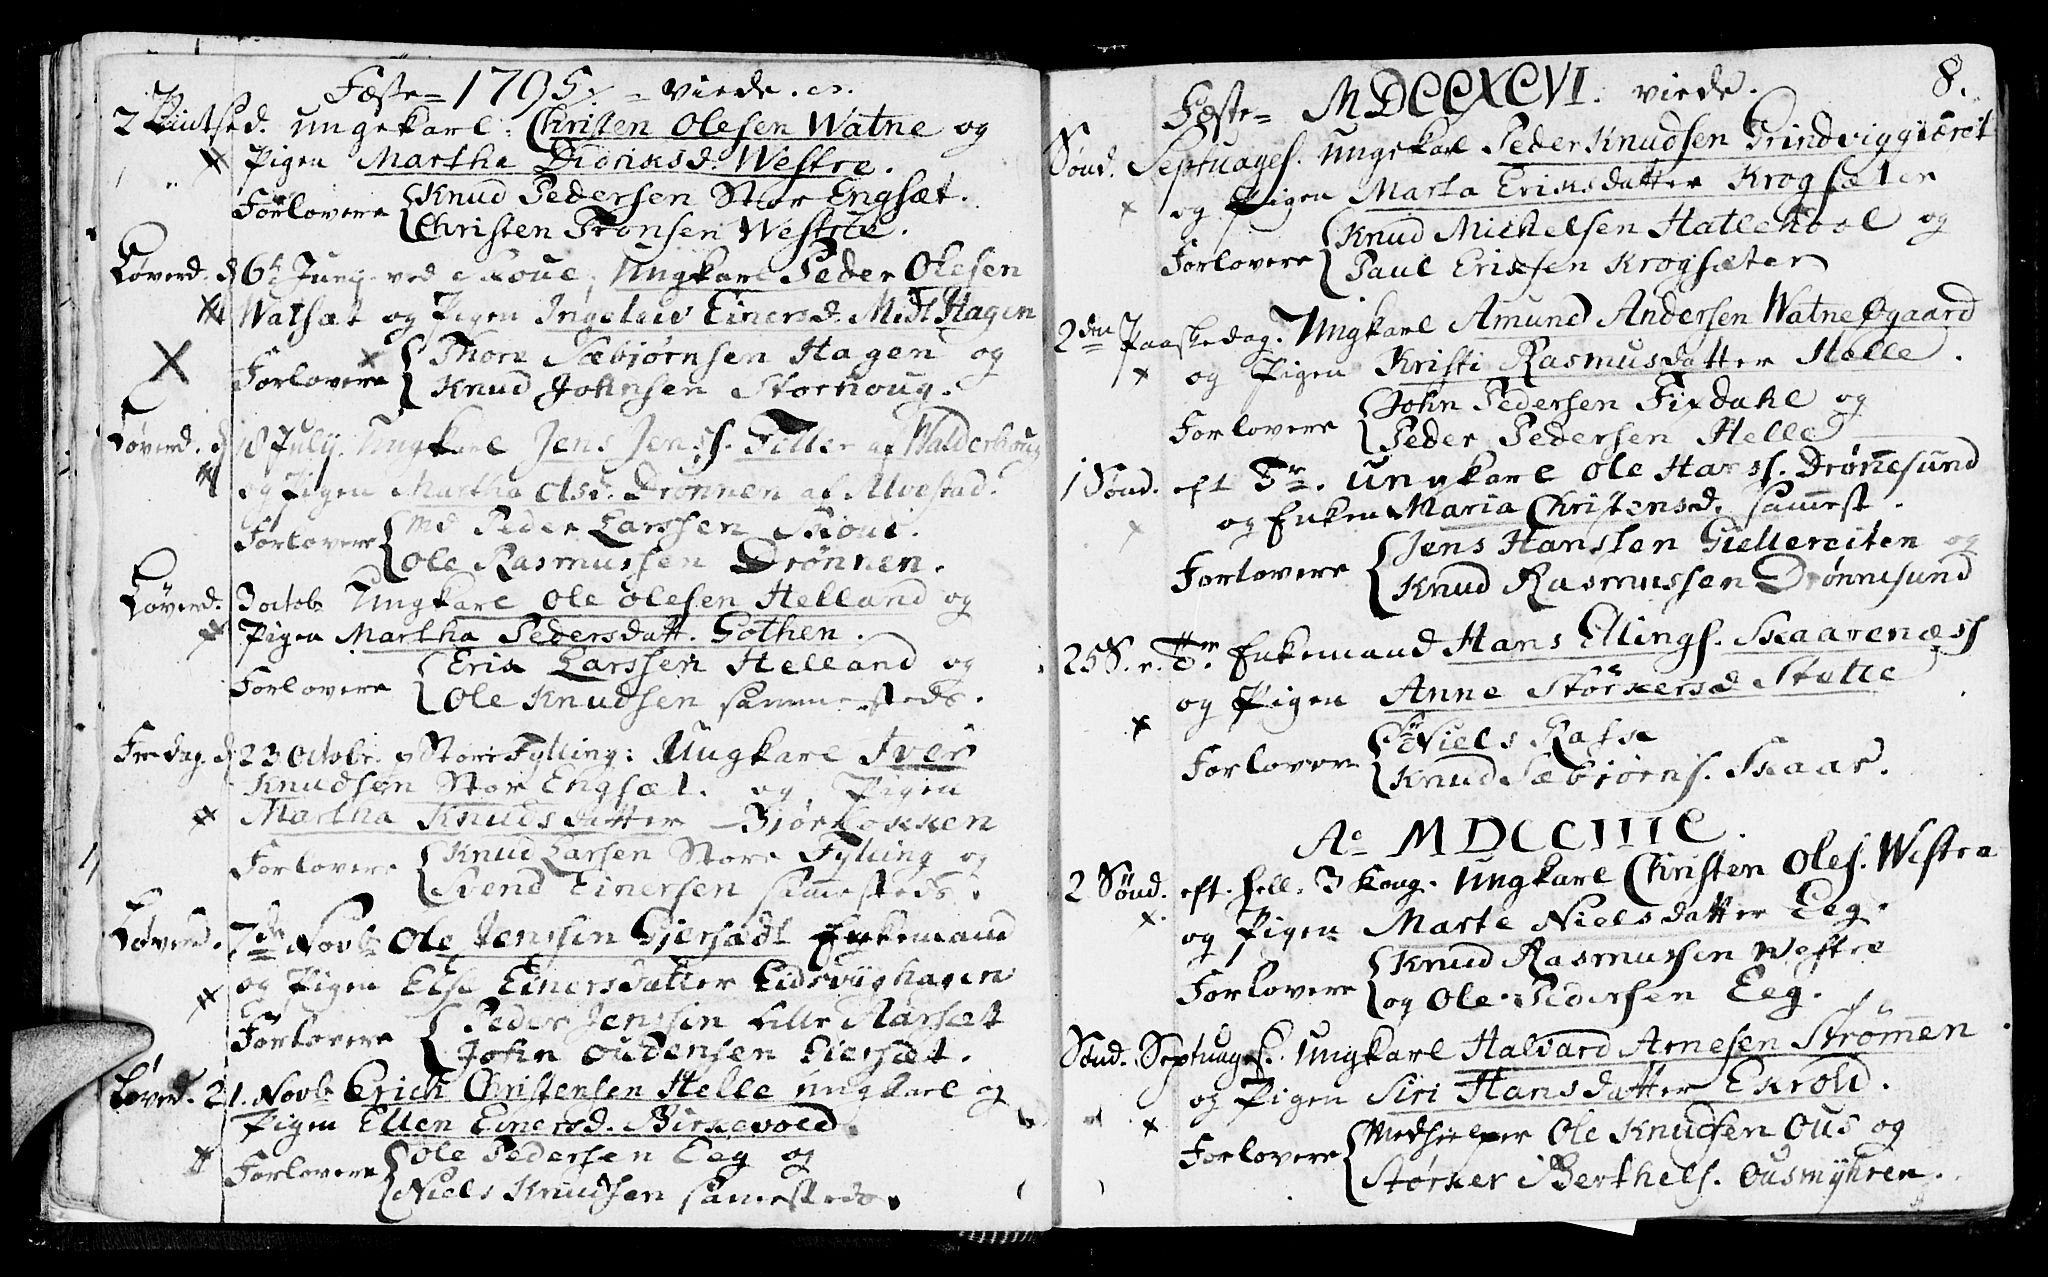 Fæste = 1795 = viede.
2 Pintsed. ungekarl: Christen Olesen Watne og
Pigen Martha Didriksd. Westre.
Forlovere Knud Pedersen Stor Engsæt.
Christen Tronsen Westre.
Løverd. d 6t Junij ved Skoue, Ungkarl Peder Olesen
Watsæt og Pigen Ingeleiv Einersd. Midt Hagen
Forlovere Thore Sæbjørnsen Hagen og
Knud Johnsen Storhoug.
Løverd. d 18 Julij. Ungkarl Jens Jenss. Teller af Walderhoug
og Pigen Martha Olsd. Drønnen af Alvestad.
Forlovere Md Peder Larssen Skoue.
Ole Rasmussen Drønnen.
Løverd. 3 octob. Ungkarl Ole Olesen Helland og
Pigen Martha Pedersdatt. Gothen.
Forlovere Erik Larssen Helland og
Ole Knudsen sammesteds.
Fredag. d 23 Octobr. p Store Fylling: Ungkarl Iver
Knudsen Stor Engsæt. og Pigen
Martha Knudsdatter Biørløkken
Forlovere Knud Larsen Store Fylling og
Svend Einersen sam̄esteds.
Løverd. 7de Novb Ole Jenssen Gjersadt Enkemand
og Pigen Else Einersdatter Eidsvighagen
Forlovere Peder Jenssen Lille Aarsæt
John Oudensen Giersæt.
Løverd. 21. Novb Erich Christensen Helle ungkarl og
Pigen Ellen Einersd. Birkevold.
Forlovere Ole Pedersen Eeg og
Niels Knudsen sam̄esteds.
Fæste = MDCCXCVI. viede. 8.
Sønd. Septuages. Ungekarl Peder Knudsen Grindvigqværet
og Pigen Marta Eriksdatter Krogsæter
Forlovere Knud Michelsen Hatlehoel og
Paul Eriksen Krogsæter
2den Paaskedag. Ungkarl Amund Andersen Watne Øgaard
og Pigen Kristi Rasmusdatter Helle.
Forlovere John Pedersen Fixdahl og
Peder Pedersen Helle
1 Sønd. eft Tr. Ungkarl Ole Hanss. Drøn̄esund
og Enken Maria Christensd. sam̄est.
Forlovere Jens Hanssen Giellereiten og
Knud Rasmussen Drønnesund
25 S. e. Tr. Enkemand Hans Ellings. Skaarenæss
og Pigen Anne Størkersd Stette
Forlover Sr Niels Rafse
Knud Sæbjørns. Skaar.
Ao MDCCIIIC.
2 Sønd. eft. Hell. 3 Kong. Ungkarl Christen Oles. Westre
og Pigen Marte Nielsdatter Eeg.
Forlovere Knud Rasmussen Westre
og Ole Pedersen Eeg.
Sønd. Septuages. Ungkarl Halvard Arnesen Strøm̄en
og Pigen Siri Hansdatter Ekrold.
Forlovere Medhielper Ole Knudsen Ous og
Størker Berthels. Ousmyhren.